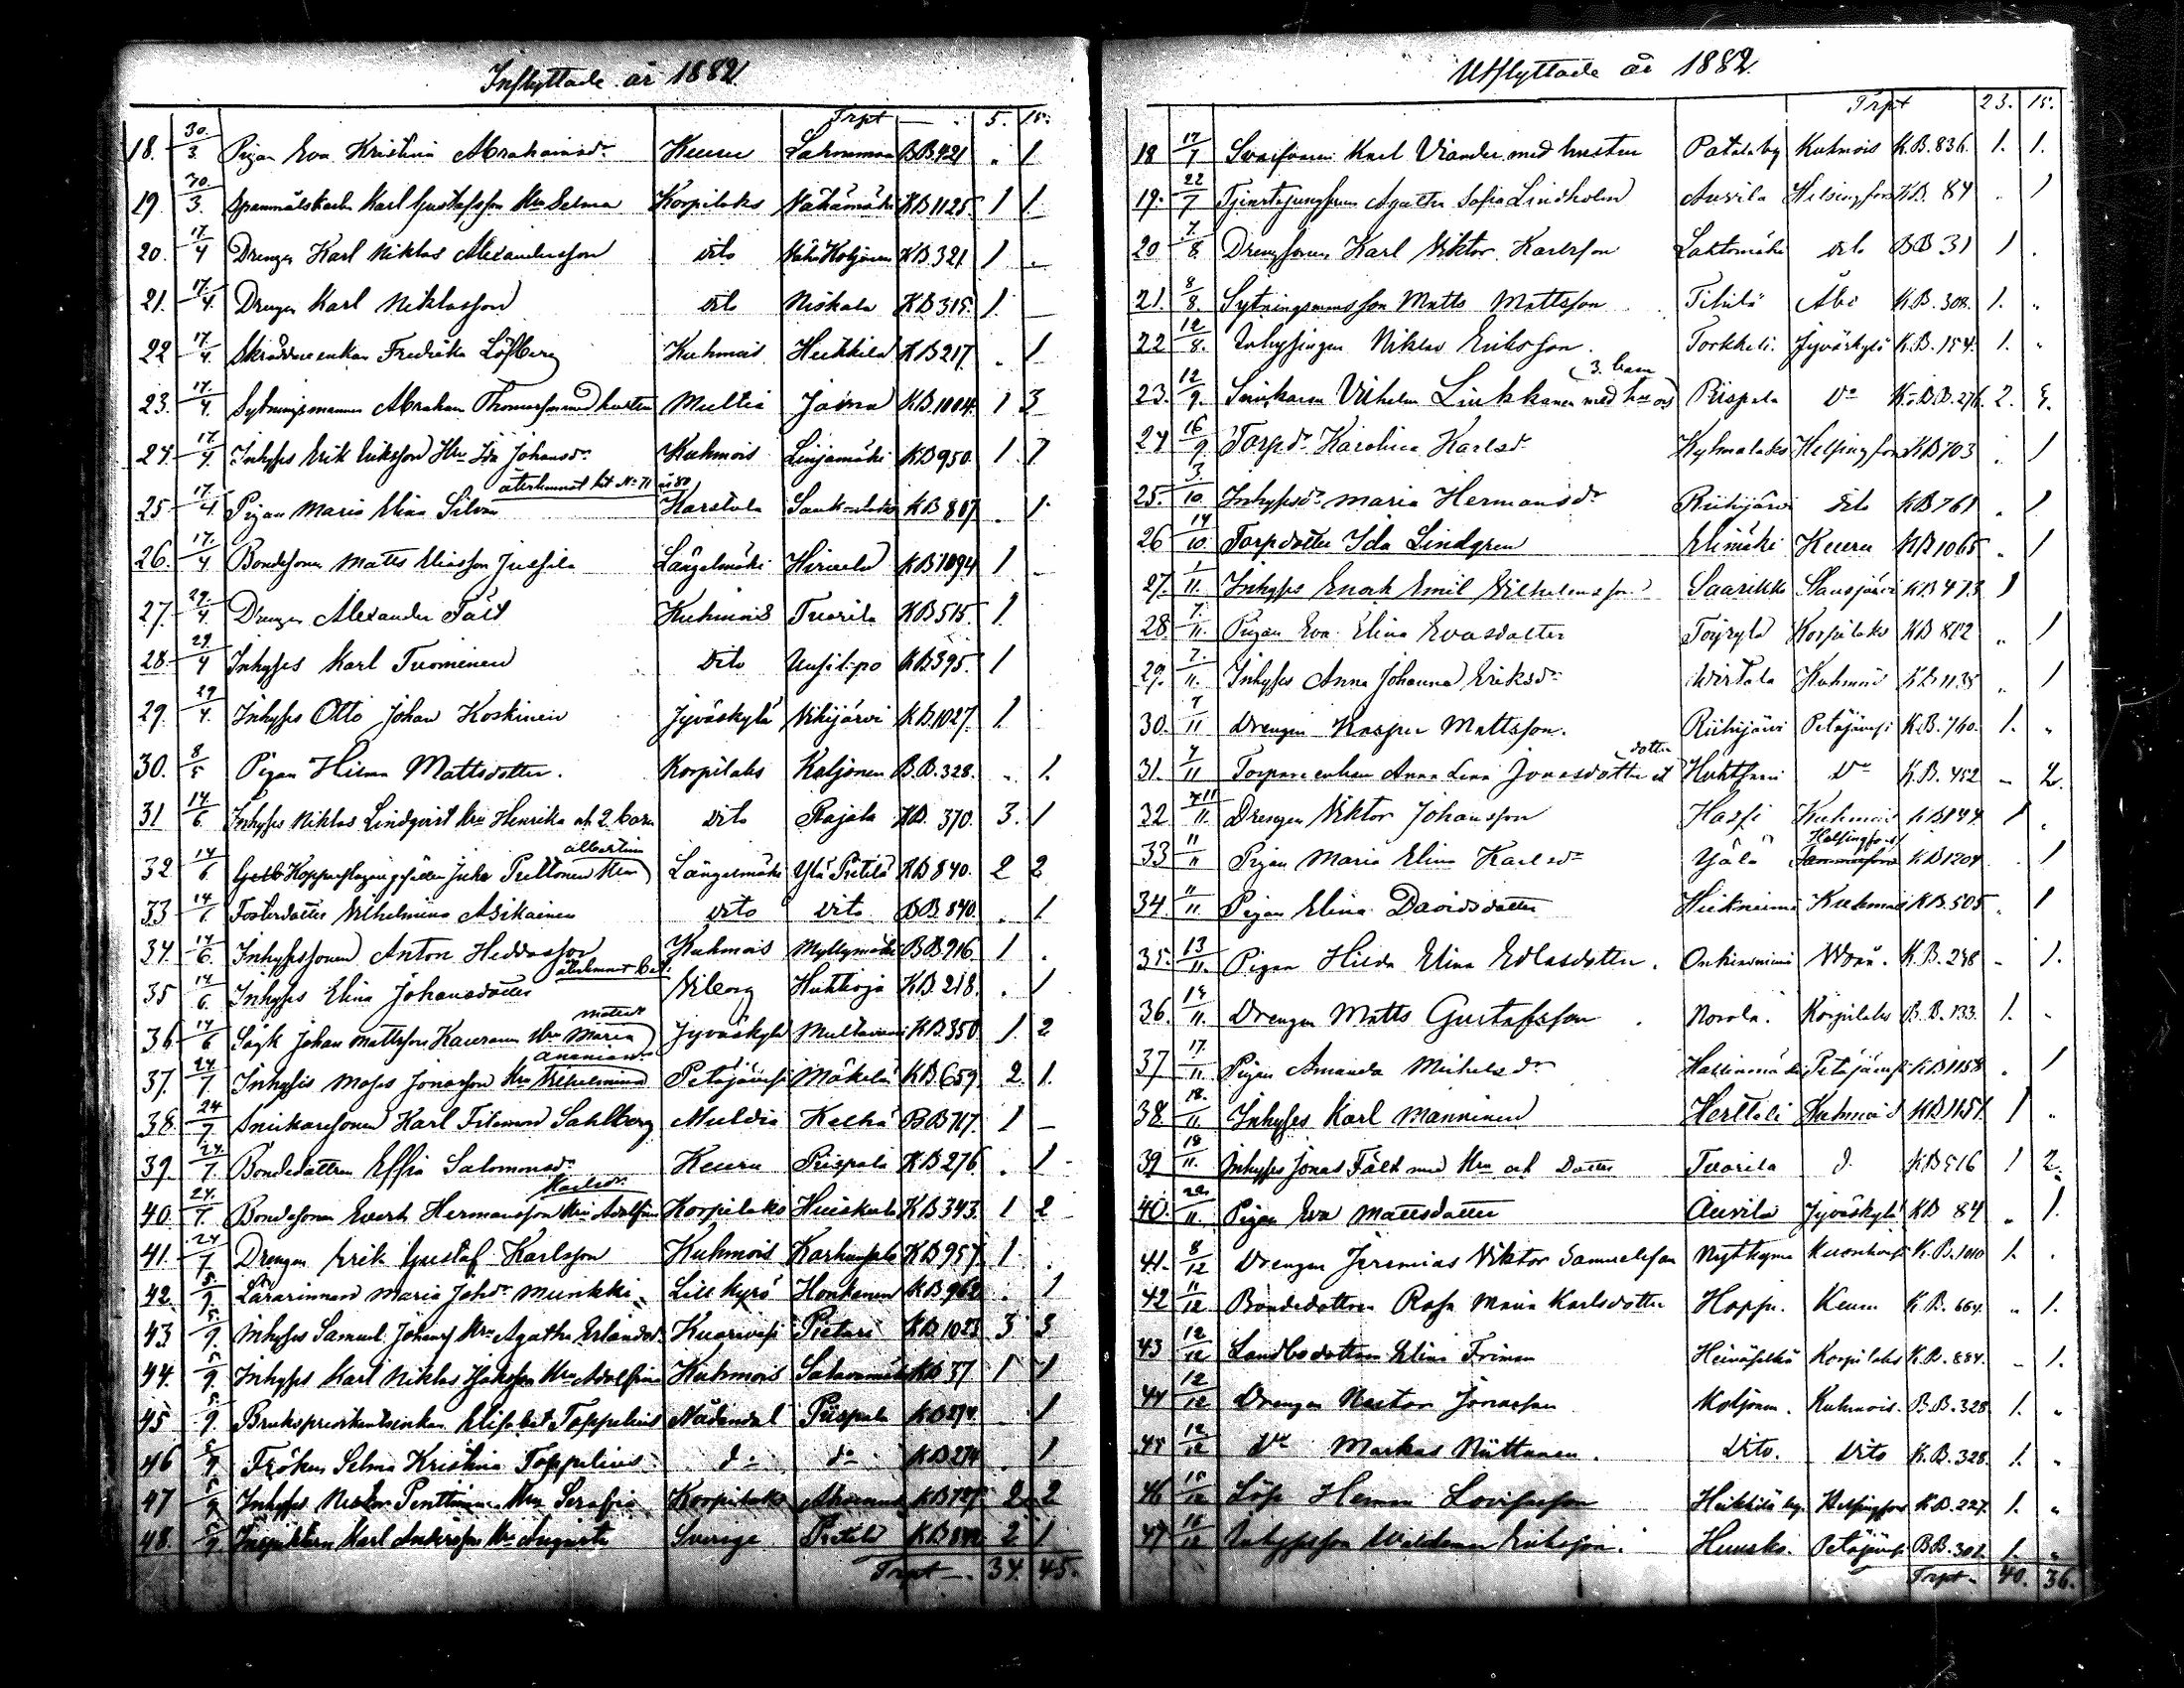 Inflyttade år 1882.
Trpt — . 5. 15.
18. 30/3. Pigan Eva Kristina Abrahamsdr Keuru BB 421 . 1
19. 30/3. Karl Gustafsson Hru Selma Korpilaks KB 1125. 1 1
20. 17/4 Drengen Karl Niklas Alexandersson dito KB 321 1 -
21. 17/4. Drengen Karl Niklasson dito Niskala KB 315. 1. -
22 17/4. Skräddareenkan Fredrika Löfberg Kuhmois Heikkilä KB 217 . 1
23. 17/4. Sytningsmannen Abraham Thomasson med hustru Multia Jämsä KB. 1004. 1 3
24. 17/4. Inhyses Erik Eriksson Hru Ida Johansdr Kuhmois Linjamäki KB 950 1. 7
återkommit hit No 71 år 80
25 17/4 Pigan Maria Elina Silvan Karstula KB 807 . 1.
26. 17/4 Bondesonen Matts Eliasson Jussila Längelmäki Hirvelä KB 1094 1 -
27. 29/4. Drengen Alexander Fält Kuhmois Tuorila KB 515. 1.
28. 29/4 Inhyses Karl Tuominen dito KB 395. 1
29. 29/4. Inhyses Otto Johan Koskinen Jyväskylä Vihijärvi KB. 1027. 1.
30. 8/5 Pigan Hilma Mattsdotter. Korpilaks Koljonen B.B. 328. .. 1.
31 14/6. Inhyses Niklas Lindqvist Hru Henrika ok 2 barn dito Rajala KB. 370. 3. 1
Albertina
32 14/6 Kopparslagaregesällen Juho Peltonen Hru Längelmäki Ylä Pietilä KB 840. 2 2
33 14/6. Fosterdotter Vilhelmina Asikainen dito dito BB. 840. . 1
34. 14/6. Inhysessonen Anton Heddasson Kuhmois Myllymäki BB 916 1 .
35 14/6 Inhyses Elina Johansdotter Viborg Huhkoja KB. 218. . 1
36 14/6 Johan Mattsson Hru Maria Jyväskylä KB 350 1. 2
37. 24/7. Inhyses Moses Jonasson Hru Vilhelmina Petäjävesi Mäkelä KB 659 2. 1.
38. 24/7. Snickaresonen Karl Filemon Sahlberg Multia Kelhä BB 717. 1 -
39. 24/7. Bondedottren Effia Salomonsdr Keuru Piispala KB 276 . 1
Karlsdr
40. 24/7. Bondesonen Evert Hermansson Hru Adolfina Korpilaks Huiskala KB 343. 1 2
41. 24/7 Drengen Erik Gustaf Karlsson Kuhmois KB 957. 1. .
42. 5/9. Lärarinnan Maria Johdr Munkki Lill kyrö Honkanen KB 962 . 1
43 5/9. Inhyses Samuel Johans Hru Agatha Erlandsd. Kuorevesi Pietari KB 1023 3 3
44. 5/9. Inhyses Karl Niklas Hru Adolfina Kuhmois KB 37 1 1
45 5/9. Elisabet Toppelius Nådendal Piispala KB 274. 1
46 5/9 Fröken Selma Kristina Toppelius do do KB 274 . 1
47 5/9 Inhyses Nestor Penttinen Hru Serafia Korpilaks KB 727. 2 2
48. 5/9. Karl Andersson Hru Augusta Sverige Pietilä 2 1
Trpt — . 34. 45.
Utflyttade år 1882.
Trpt 23. 15.
18 17/7 Karl Viander med hustru Patalaby Kuhmois K.B. 836. 1. 1.
19. 22/7 Agatha Sofia Lindholm Auvila Helsingfors KB. 84 . 1
20 7/8. Drengsonen Karl Viktor Karlsson Lahtomäki dito BB 31 1 .
21. 8/8. Sytningsmansson Matts Mattsson Tihilä Åbo K.B. 308. 1. "
22 12/8. Inhysingen Niklas Eriksson. Torkkeli. Jyväskylä K.B. 154. 1. "
3. barn
23. 12/9. Snickaren Vilhelm Liukkanen med hru och Piispala Do K.B.B. 276. 2. 4.
24 16/9 Torpdr Karolina Karlsdr Hyhmalaks Helsingfors KB 703 . 1
25. 3/10. Inhysdr Maria Hermansdr Riihijärvi dito KB 761 " 1
26 14/10. Torpdotter Ida Lindgren Elimäki Keuru KB 1065 " 1
27. 1/11. Inhyses Enok Emil Vilhelmsson Saarikko KB 473 1
28. 7/11. Pigan Eva Elina Evasdotter Töyrylä Korpilaks KB 812 " 1
29. 7/11. Inhyses Anna Johanna Eriksdr Wirtala Kuhmois KB 1135 " 1
30. 7/11 Drengen Kasper Mattsson. Riihijärvi Petäjävesi K.B. 760. 1. "
dotter
31. 7/11 Torpareenkan Anna Lena Jonasdotter et Do K.B. 452 - 2.
32 7/11. Drengen Viktor Johansson Hassi Kuhmois KB 144. 1 .
Helsingfors
33 11/11 Pigan Maria Elina Karlsdr Ylälä KB 1204 . 1
34 11/11. Pigan Elina Davidsdotter Heikniemi Kuhmois KB. 505 . 1
35. 13/11. Pigan Hilda Elina Edlasdotter. Onkiniemi K.B. 248 - 1.
36. 14/11. Drengen Matts Gustafsson . Norola. Korpilaks B.B. 133. 1. -
37 17/11. Pigan Amanda Mickelsdr Hallinmäki Petäjävesi KB 1158 . 1
38. 18/11. Inhyses Karl Manninen Herttali Kuhmois KB 1151. 1 "
39 18/11. Inhyses Jonas Fält med Hru och Dotter Tuorila d. KB 516 1 2.
40. 22/11. Pigan Eva Mattsdotter Auvila Jyväskylä KB 84 " 1.
41. 8/12 Drengen Jeremias Viktor Samuelsson K.B. 1010 1. .
42 11/12. Bondedottren Rosa Maria Karlsdotter Hoppu. Keuru K.B. 664. " 1.
43 12/12 Landbodottren Elina Friman Heinäselkä Korpilaks K.B. 884. - 1.
44 12/12 Drengen Nestor Jonasson Koljonen. Kuhmois. B.B. 328 1. "
45 12/12 Do Markus Niittanen. Dito. Dito K.B. 328. 1. "
46 15/12 Löse Herman Lovisasson Heikkilä by. Helsingfors KB. 227. 1. "
47 15/12 Inhyssson Waldemar Eriksson. Petäjävesi BB. 301. 1. "
Trpt - 40. 36.